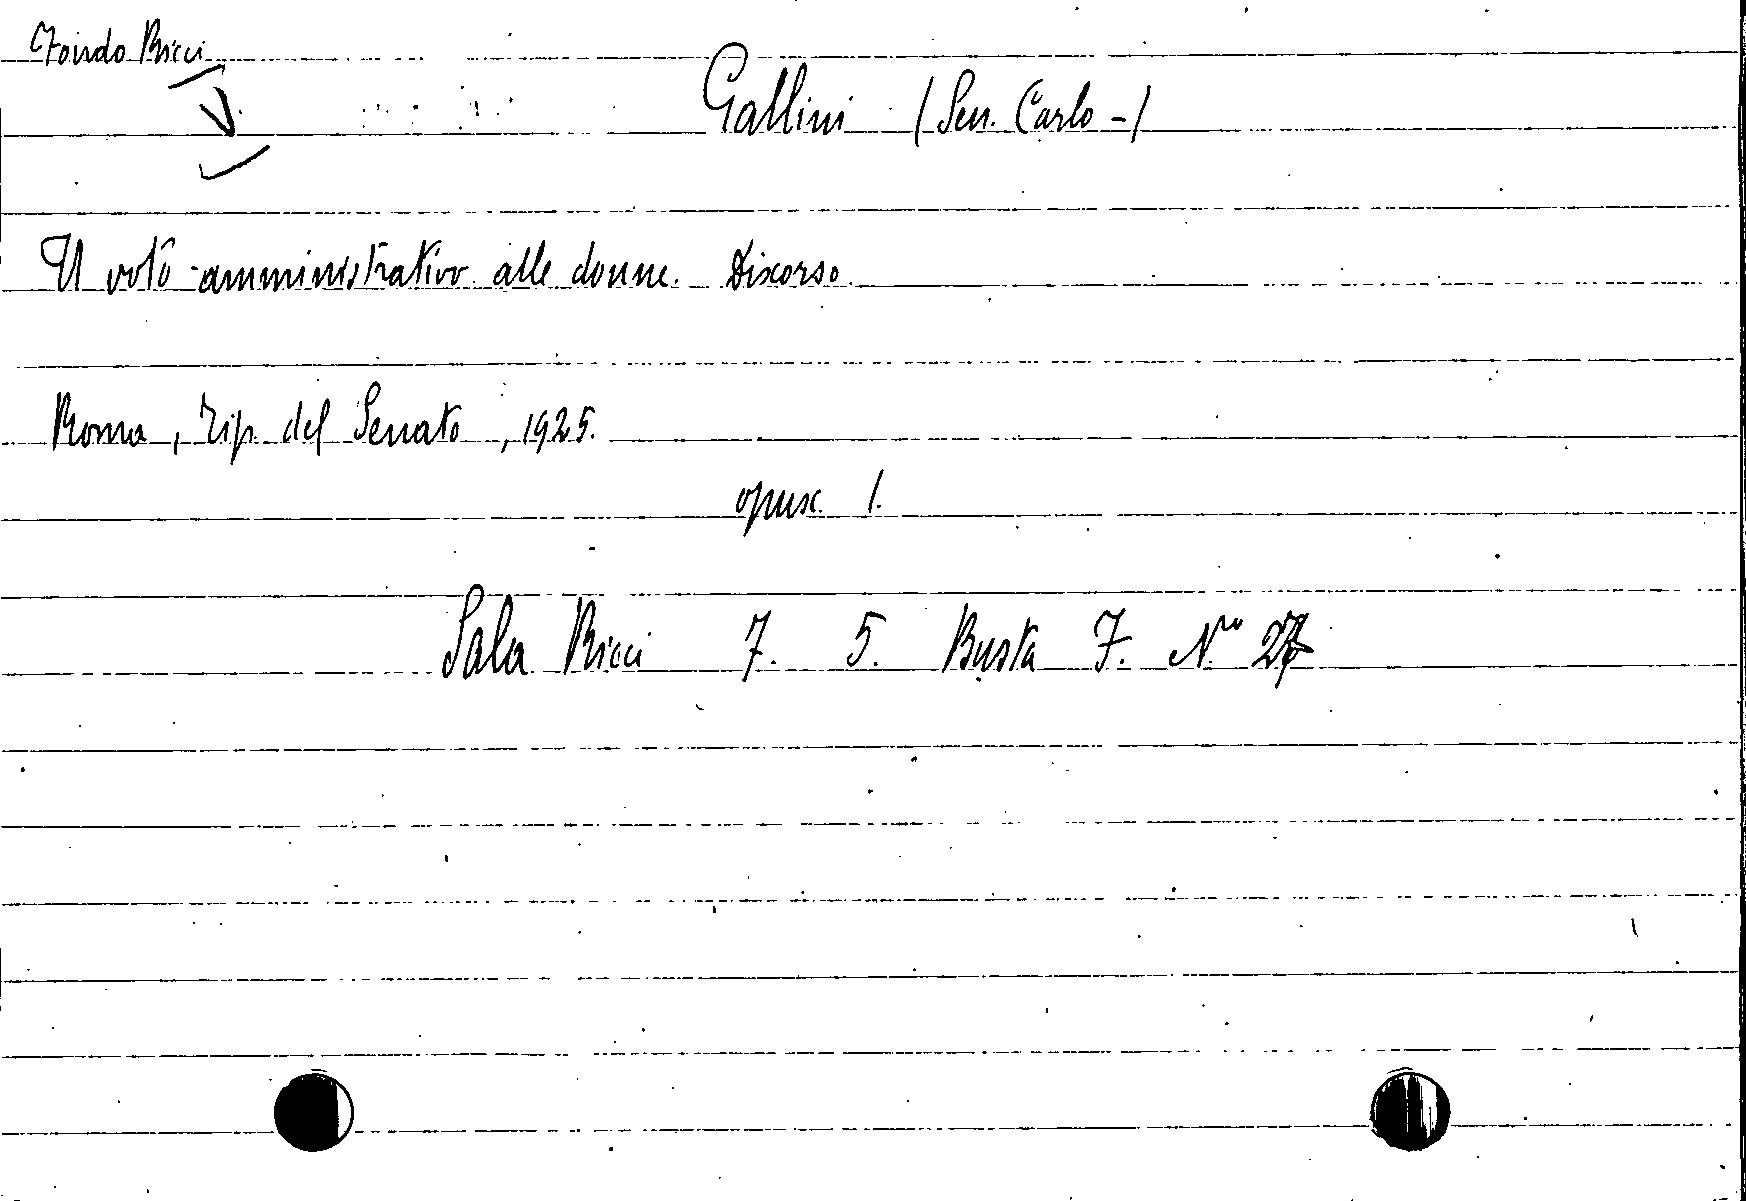 Fondo Ricci
Gallini (Sen. Carlo -)
Il voto amministrativo alle donne. Discorso.
Roma, Tip. del Senato, 1925.
opusc. 1.
Sala Ricci 7. 5. Busta 7. Nro 27